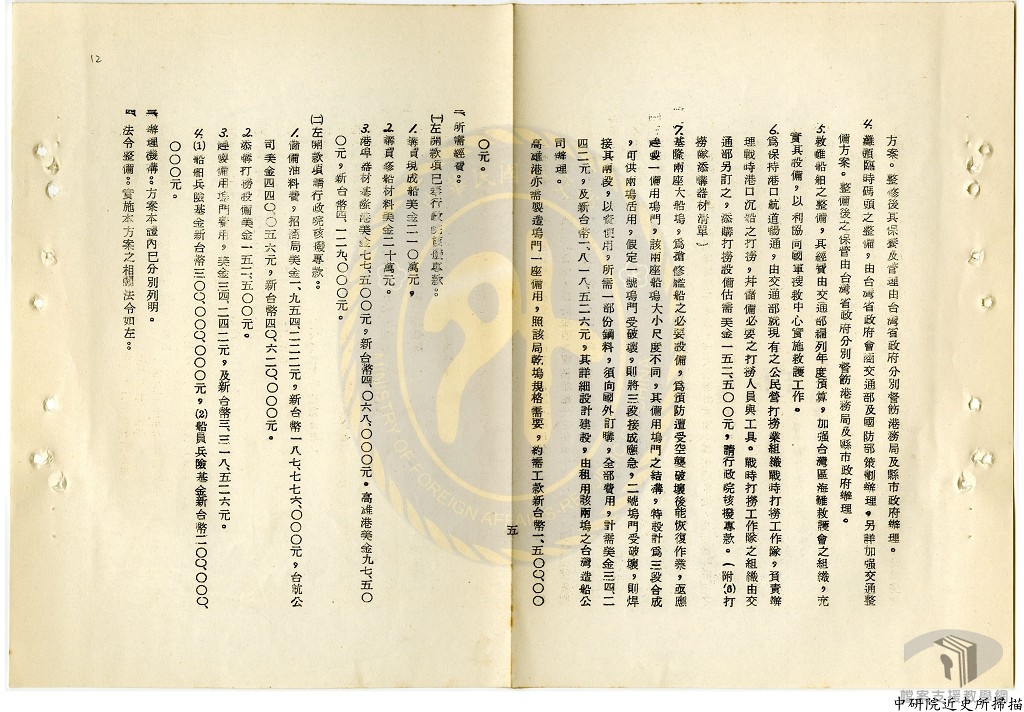 方案。整修後其保養及管理由台灣省政府分別督飭港務局及縣市政府辦理。
4.離碼臨時碼頭之整備，由台灣省政府會商交通部及國防部策劃辦理。另詳加强交通整
備方案。整備後之保管由台灣省政府分別督飭港務局及縣市政府辦理。
5.救難船舶之整備，其經費由交通部編列年度預算，加强台灣區海難救護會之組織，充
實其設備，以利協同國軍搜救中心實施救護工作。
6.爲保持港口航道暢通，由交通部就現有之公民營打撈業組織戰時打撈工作隊，負責辦
理戰時港口沉船之打撈，并儲備必要之打撈人員與工具。戰時打撈工作隊之組織由交
通部另訂之，添購打撈設備估需美金一五二、五〇〇元，請行政院核撥專款。（附(8)打
撈隊添購器材清單）
7.基隆兩座大船塢，爲搶修艦船之必要設備，爲預防遭受空襲破壞後能恢復作業，亟應
建製一備用塢門，該兩座船塢大小尺度不同，其備用塢門之結構，特設計爲三段合成
，可供兩塢活用，假定一號塢門受破壞，即將三段接成應急，二號塢門受破壞，則焊
接其兩段，以資使用，所需一部份鋼料，須向國外訂購，全部費用，計需美金三四、二
四二元，及新台幣一、八一八、五二六元，其詳細設計建設，由租用該兩塢之台灣造船公
司辦理。
高雄港亦需製造塢門一座備用，照該局乾塢規格需要，約需工款新台幣一、五〇〇、〇〇
〇元。
五
二、所需經費：
(一)左開款項已奉行政院核撥專款：
1.購買現成船美金二一〇萬元。
2.購買修船材料美金二十萬元。
3.港埠器材基隆港美金七七、五〇〇元，新台幣四、〇六八、〇〇〇元。高雄港美金九七、五〇
〇元，新台幣四、一二九、〇〇〇元。
(二)左開款項請行政院核撥專款：
1.儲備油料費，招商局美金一、九五四、二二二元，新台幣一八、七七七、六〇〇〇元，台航公
司美金四四〇、〇五六元，新台幣四〇、六二〇、〇〇〇元。
2.添購打撈設備美金一五二、五〇〇元。
3.建製備用塢門費用，美金三四、二四二元，及新台幣三、三一八、五二六元。
4.(1)船舶兵險基金新台幣三〇〇、〇〇〇、〇〇〇元，(2)船員兵險基金新台幣二〇、〇〇〇、
〇〇〇元。
三、辦理機構：方案本議內已分別列明。
四、法令整備：實施本方案之相關法令如左：
12
MINISTRY OF FOREIGN AFFAIRS
檔案支援教學網
中研院近史所掃描